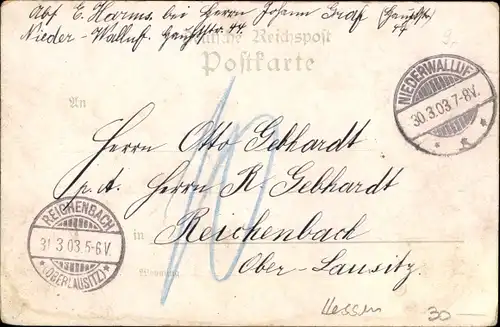 Abs. E. Harms. bei Herrn Johann Graf (Hauptstr.
44
Nieder-Walluf. Hauptstr. 44
Deutsche Reichspost
Postkarte
An
NIEDERWALLUF
30.3.03.7-8V.
10
Herrn Otto Gebhardt
p. A. Herrn R. Gebhardt
in Reichenbach
Ober-Lausitz.
REICHENBACH
31.3.03.5-6V.
(OBERLAUSITZ)
Wohnung
Hessen
30-